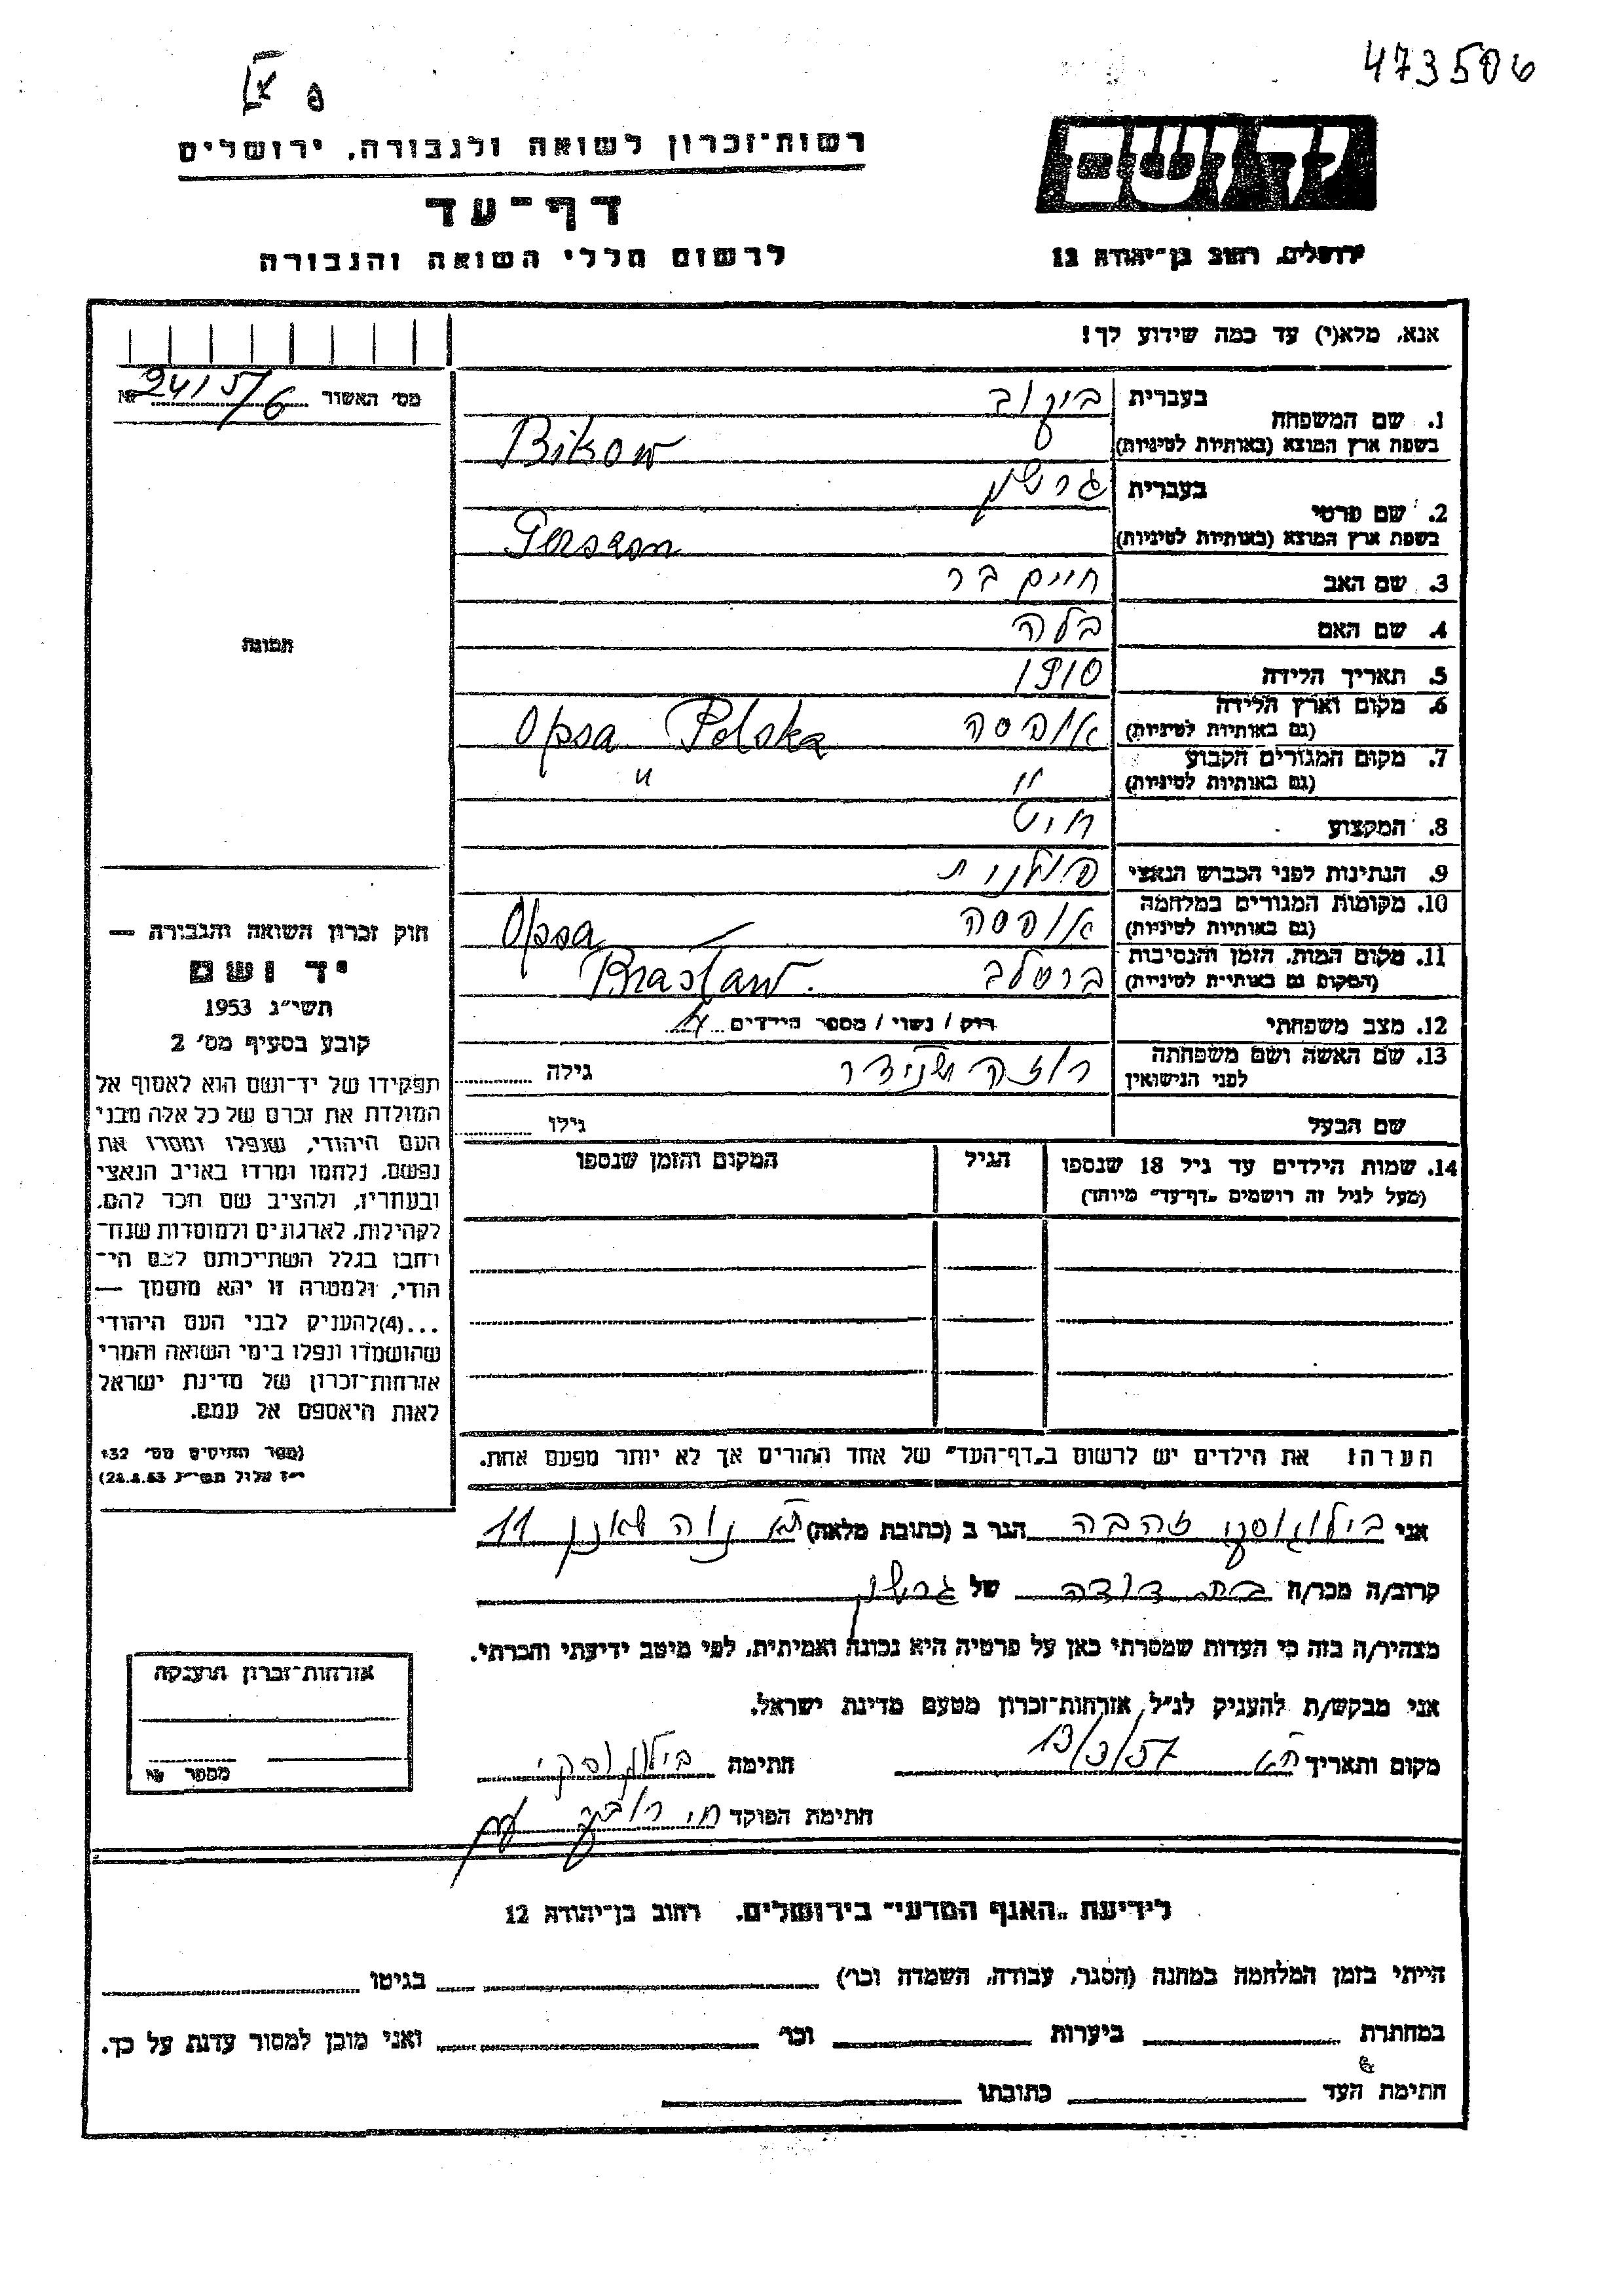 473506
רשות־זכרון לשואה ולגבורה, ירושלים
יד ושם
דף־עד
לרשום חללי השואה והגבורה
ירושלים, רחוב בן־יהודה 12
אנא, מלא(י) עד כמה שידוע לך!
מס׳ האשור 24157/6 №
1. שם המשפחה
בעברית ביקוב
בשפת ארץ המוצא (באותיות לטיניות) Bikow
2. שם פרטי
בעברית גרשון
בשפת ארץ המוצא (באותיות לטיניות) Gerszon
3. שם האב חיים בר
4. שם האם בלה
תמונה
5. תאריך הלידה 1910
6. מקום וארץ הלידה אופסה Opsa Polska
(גם באותיות לטיניות)
7. מקום המגורים הקבוע " "
(גם באותיות לטיניות)
8. המקצוע חיט
9. הנתינות לפני הכבוש הנאצי פולנית
10. מקומות המגורים במלחמה אופסה Opsa
(גם באותיות לטיניות)
11. מקום המות, הזמן והנסיבות ברסלב Brasław.
(המקום גם באותיות לטיניות)
12. מצב משפחתי רוק / נשוי / מספר הילדים
13. שם האשה ושם משפחתה רוזה שניידר גילה
לפני הנישואין
שם הבעל גילו
14. שמות הילדים עד גיל 18 שנספו הגיל המקום והזמן שנספו
(מעל לגיל זה רושמים „דף־עד״ מיוחד)
הערה: את הילדים יש לרשום ב„דף־העד״ של אחד ההורים אך לא יותר מפעם אחת.
חוק זכרון השואה והגבורה —
יד ושם
תשי״ג 1953
קובע בסעיף מס׳ 2
תפקידו של יד־ושם הוא לאסוף אל
המולדת את זכרם של כל אלה מבני
העם היהודי, שנפלו ומסרו את
נפשם, נלחמו ומרדו באויב הנאצי
ובעוזריו, ולהציב שם וזכר להם,
לקהילות, לארגונים ולמוסדות שנח־
רבו בגלל השתייכותם לעם הי־
הודי, ולמטרה זו יהא מוסמך —
...(4)להעניק לבני העם היהודי
שהושמדו ונפלו בימי השואה והמרי
אזרחות־זכרון של מדינת ישראל
לאות היאספם אל עמם.
(ספר החוקים מס׳ 132
י״ז אלול תשי״ג 28.8.53)
אני בילוגוסקי זהבה הגר ב (כתובת מלאה) ת״א נוה שאנן 11
קרוב/ה מכר/ה בת דודה של גרשון
מצהיר/ה בזה כי העדות שמסרתי כאן על פרטיה היא נכונה ואמיתית, לפי מיטב ידיעתי והכרתי.
אני מבקש/ת להעניק לנ״ל אזרחות־זכרון מטעם מדינת ישראל.
מקום ותאריך ת״א 13/3/57 חתימה
חתימת הפוקד
אזרחות־זכרון הוענקה
מספר №
לידיעת „האגף המדעי״ בירושלים, רחוב בן־יהודה 12
הייתי בזמן המלחמה במחנה (הסגר, עבודה, השמדה וכו׳) בגיטו
במחתרת ביערות וכו׳ ואני מוכן למסור עדות על כך.
חתימת העד כתובתו